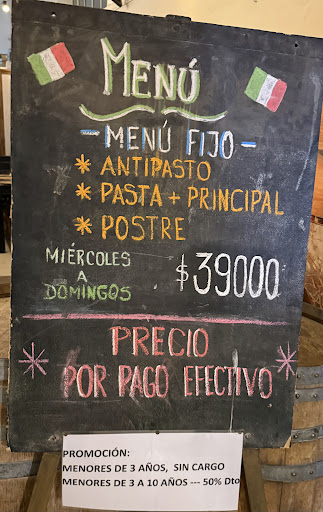 MENÚ
- MENÚ FIJO -
* ANTIPASTO
* PASTA + PRINCIPAL
* POSTRE
MIÉRCOLES
A
DOMINGOS
$39000
PRECIO
* POR PAGO EFECTIVO *
PROMOCIÓN:
MENORES DE 3 AÑOS, SIN CARGO
MENORES DE 3 A 10 AÑOS --- 50% Dto